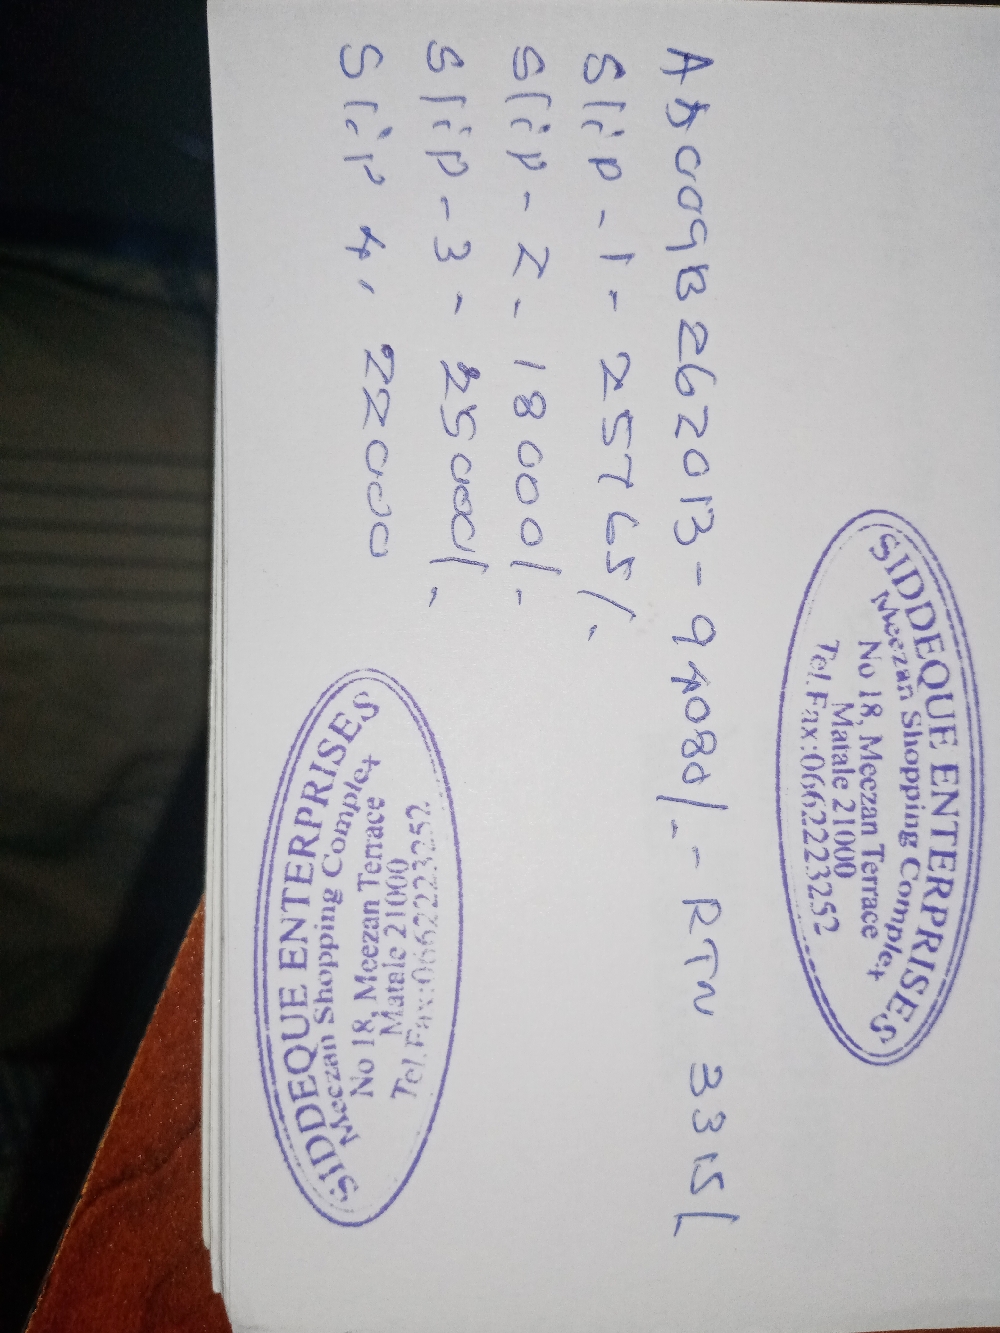 SIDDEQUE ENTERPRISES
Meezan Shopping Complex
No 18, Meezan Terrace
Matale 21000
Tel. Fax:0662223252
A5009B262013 - 94080/- - RTN 3315/
Slip - 1 - 25765/-
Slip - 2 - 18000/-
Slip - 3 - 25000/-
Slip 4, 22000
SIDDEQUE ENTERPRISES
Meezan Shopping Complex
No 18, Meezan Terrace
Matale 21000
Tel. Fax:0662223252